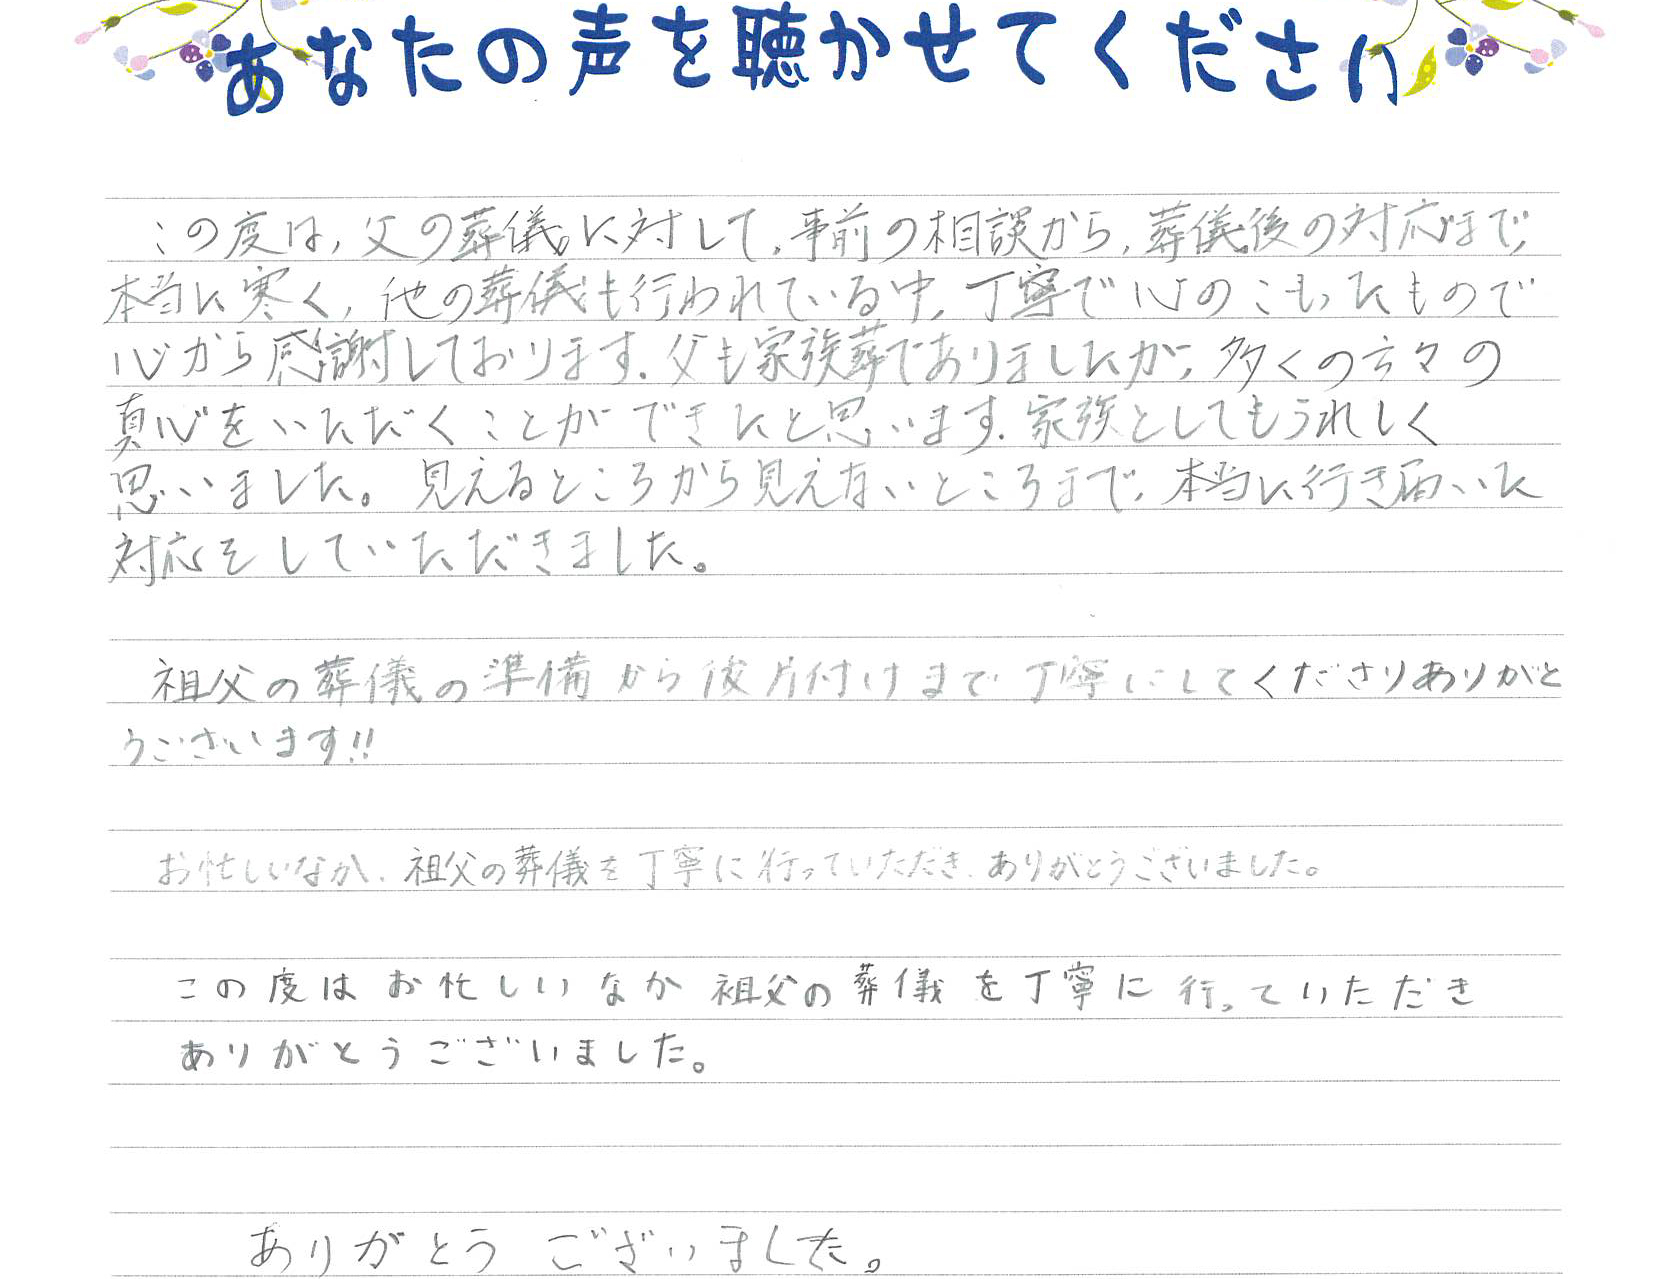 あなたの声を聴かせてください
この度は、父の葬儀に対して、事前の相談から、葬儀後の対応まで、
本当に寒く、他の葬儀も行われている中、丁寧で心のこもったもので
心から感謝しております。父も家族葬でありましたが、多くの方々の
真心をいただくことができたと思います。家族としてもうれしく
思いました。見えるところから見えないところまで、本当に行き届いた
対応をしていただきました。
祖父の葬儀の準備から後片付けまで丁寧にしてくださりありがと
うございます!!
お忙しいなか、祖父の葬儀を丁寧に行っていただき、ありがとうございました。
この度はお忙しいなか祖父の葬儀を丁寧に行っていただき
ありがとうございました。
ありがとうございました。